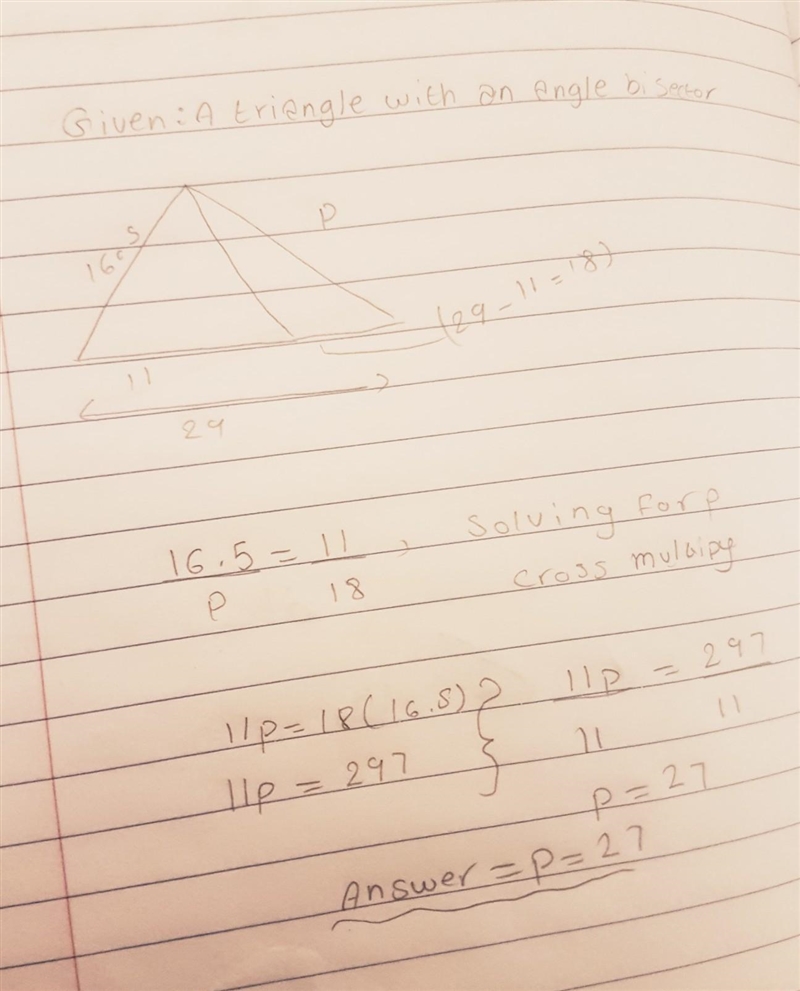 Given: A triangle with an angle bisector
16.5
P
(29 - 11 = 18)
11
29
16.5 = 11 , Solving for p
P 18 cross mulbipy
11p = 18(16.5) } 11p = 297
11p = 297 11 11
P = 27
Answer = P = 27